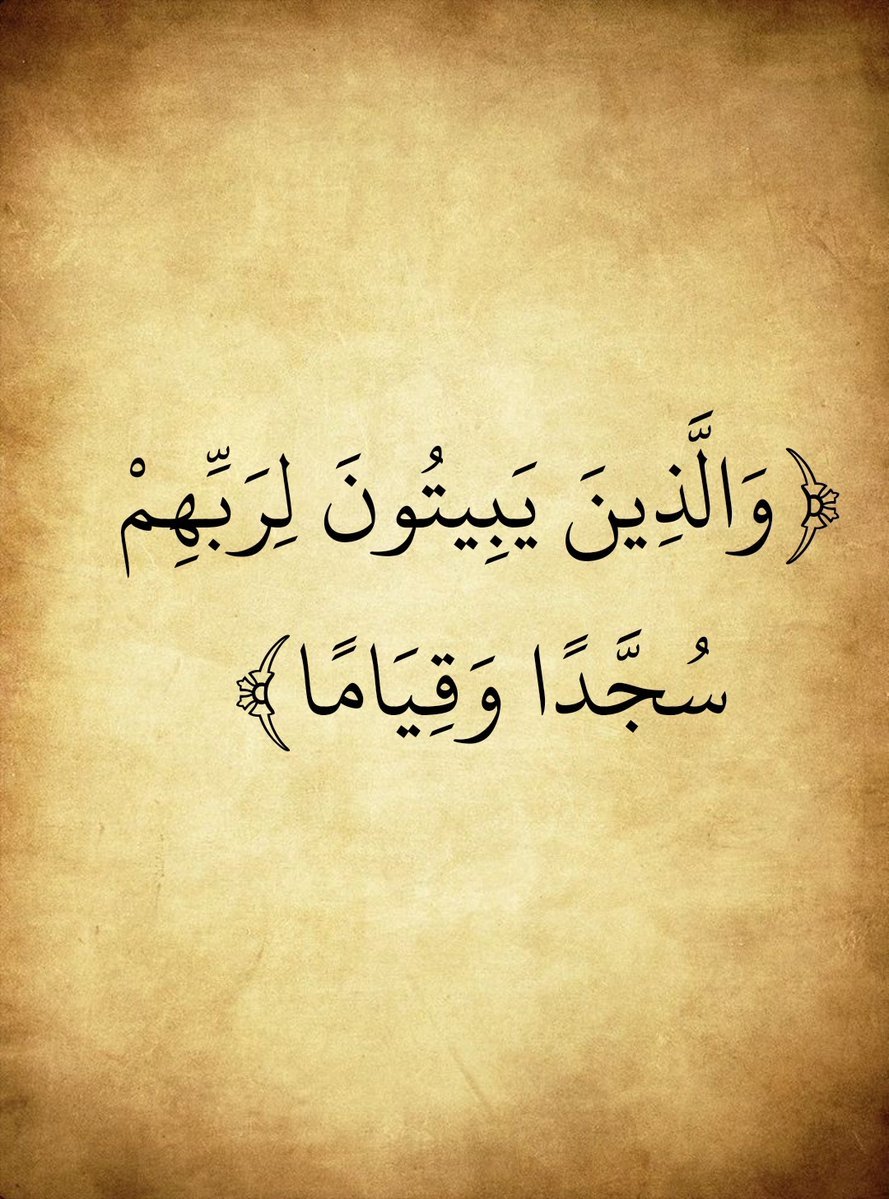 ﴿وَالَّذِينَ يَبِيتُونَ لِرَبِّهِمْ
سُجَّدًا وَقِيَامًا﴾